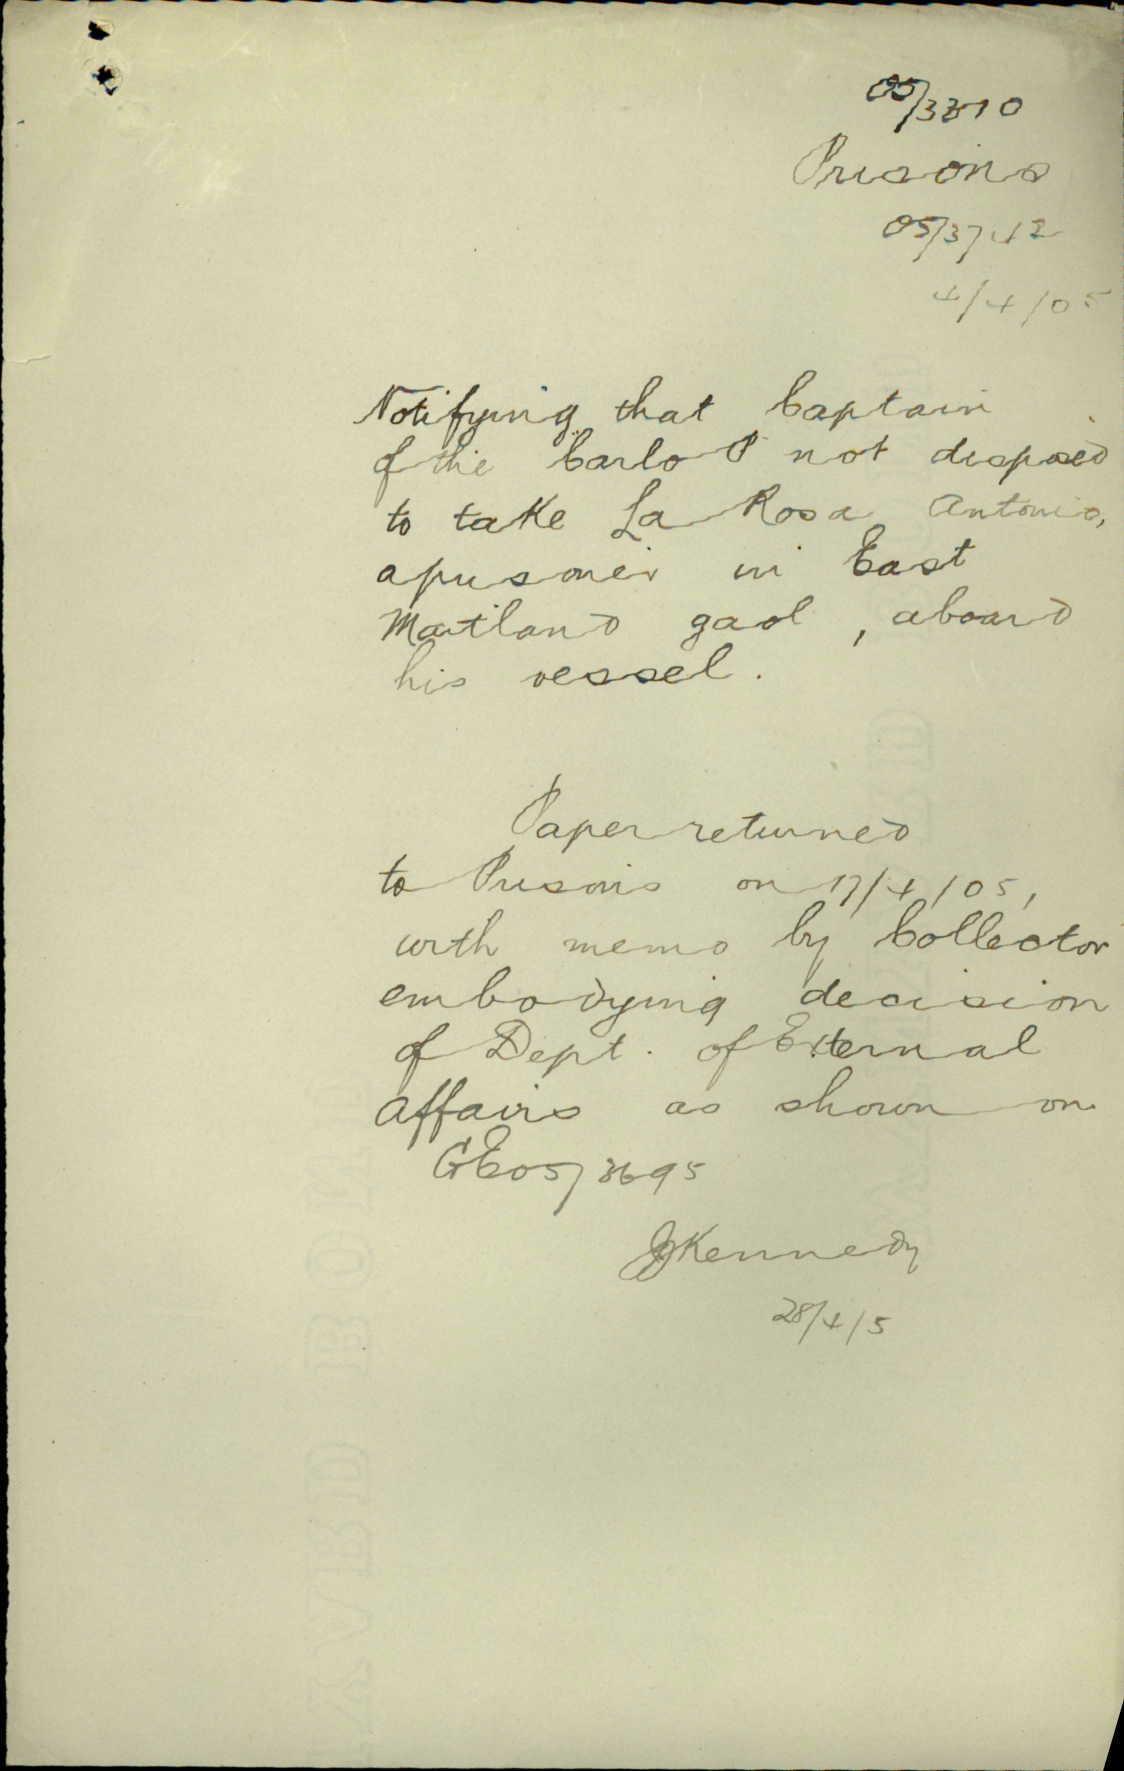 05/3810
Prisons
05/3742
4/4/05
Notifying that Captain
of the Carlo P not disposed
to take La Rosa Antonio,
a prisoner in East
Maitland gaol, aboard
his vessel.
Paper returned
to Prisons on 17/4/05,
with memo by Collector
embodying decision
of Dept. of External
Affairs as shown on
GE05/3695
JJKennedy
28/4/5